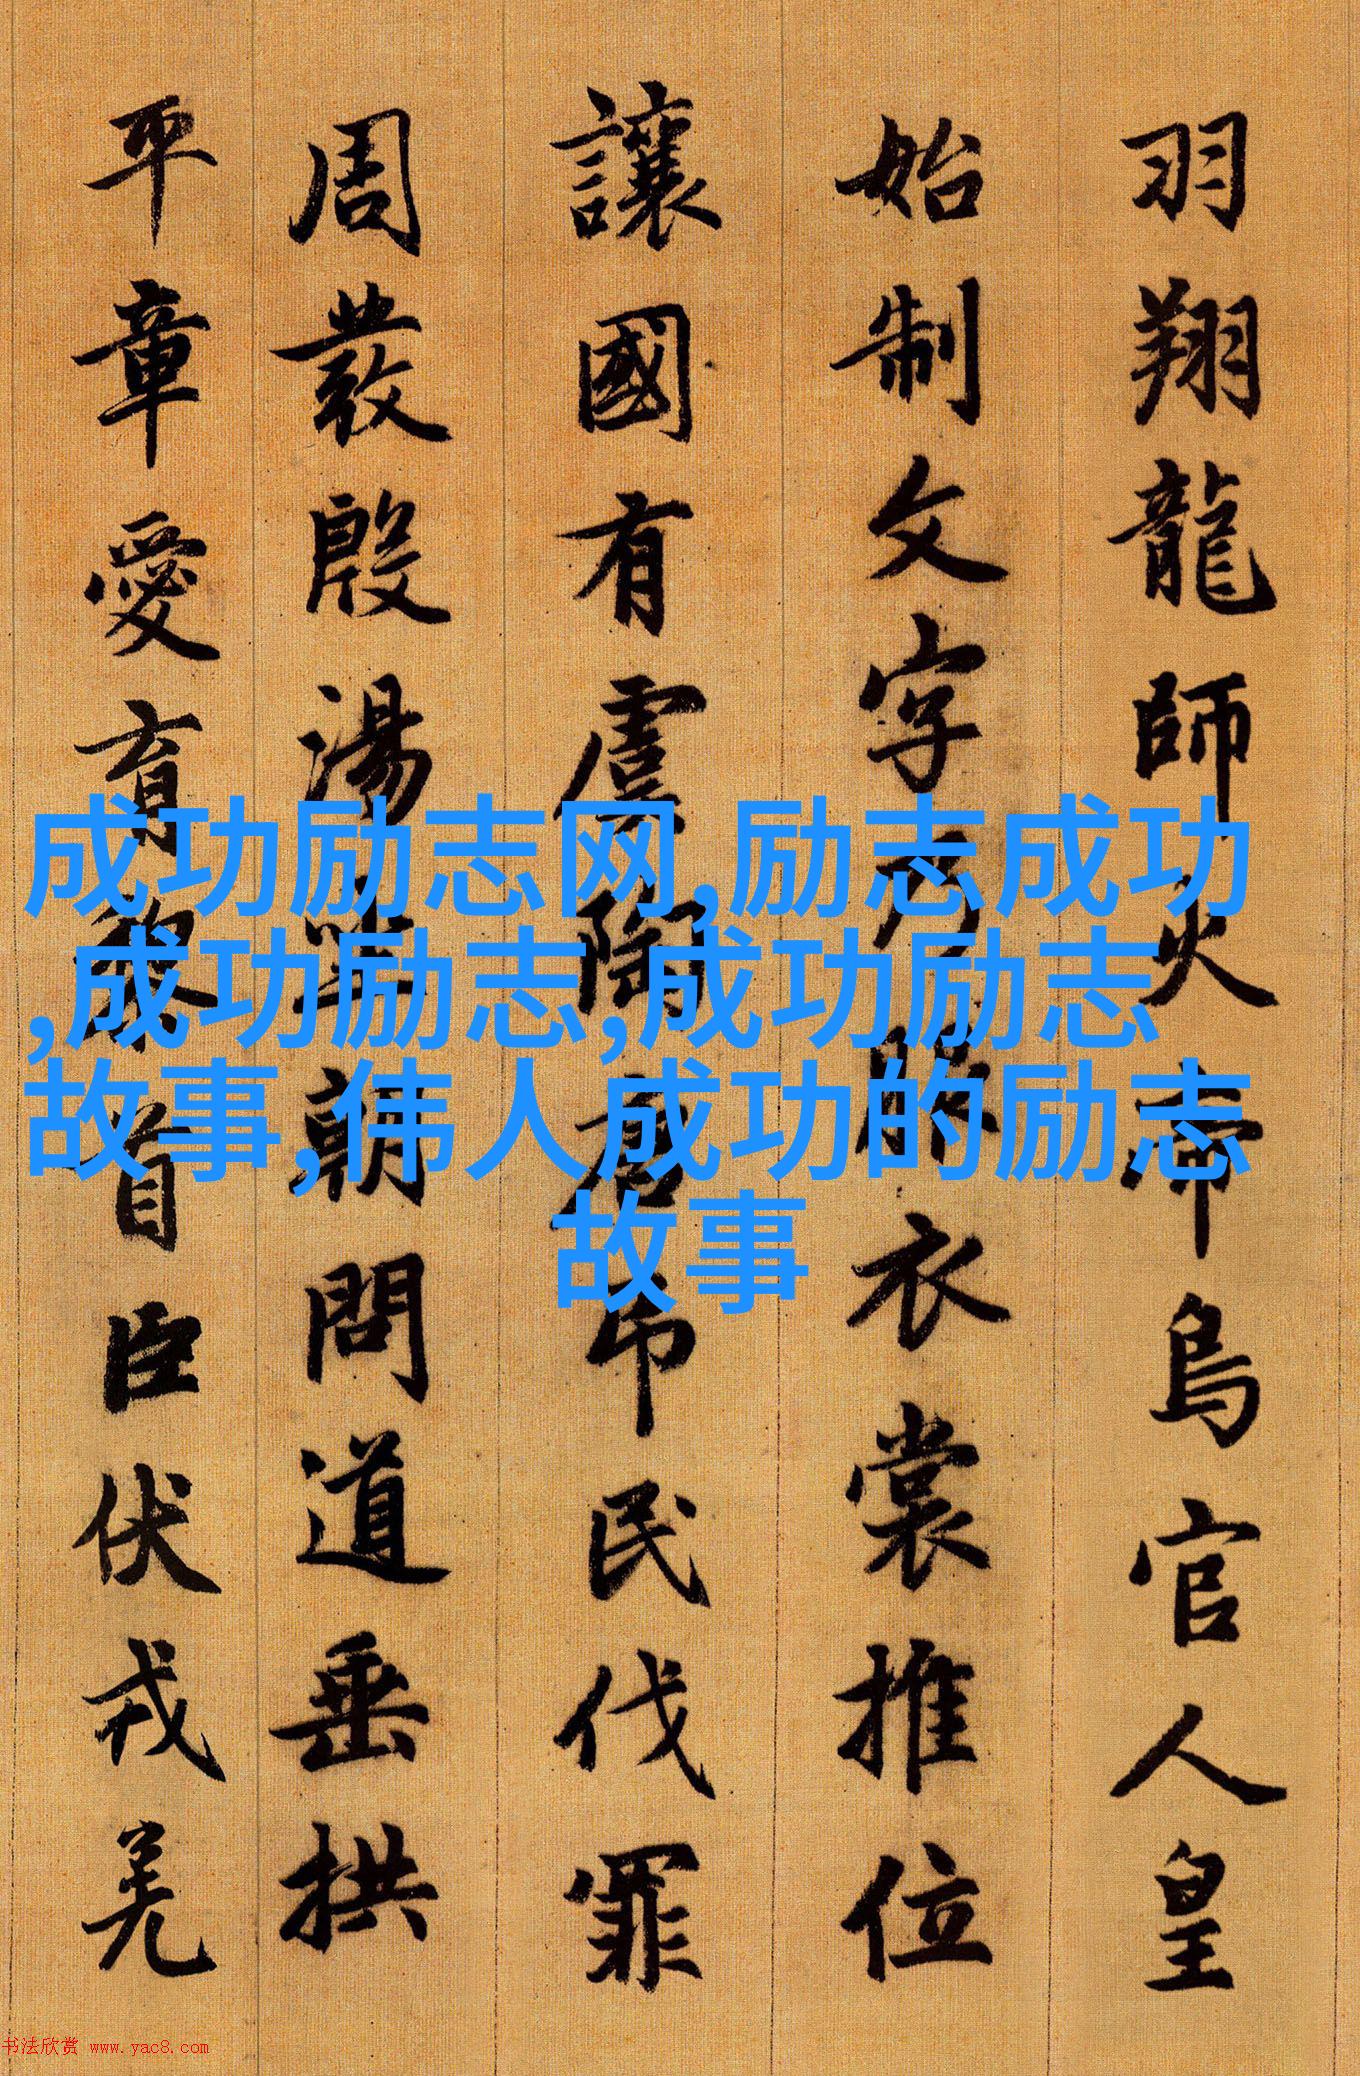 羽翔龍師火帝鳥官人皇
始制文字乃服衣裳推位
讓國有虞陶唐吊民伐罪
周發殷湯坐朝問道垂拱
平章愛育黎首臣伏戎羌
成功励志网,励志成功
,成功励志,成功励志
故事,伟人成功的励志
故事
书法欣赏 www.yac8.com